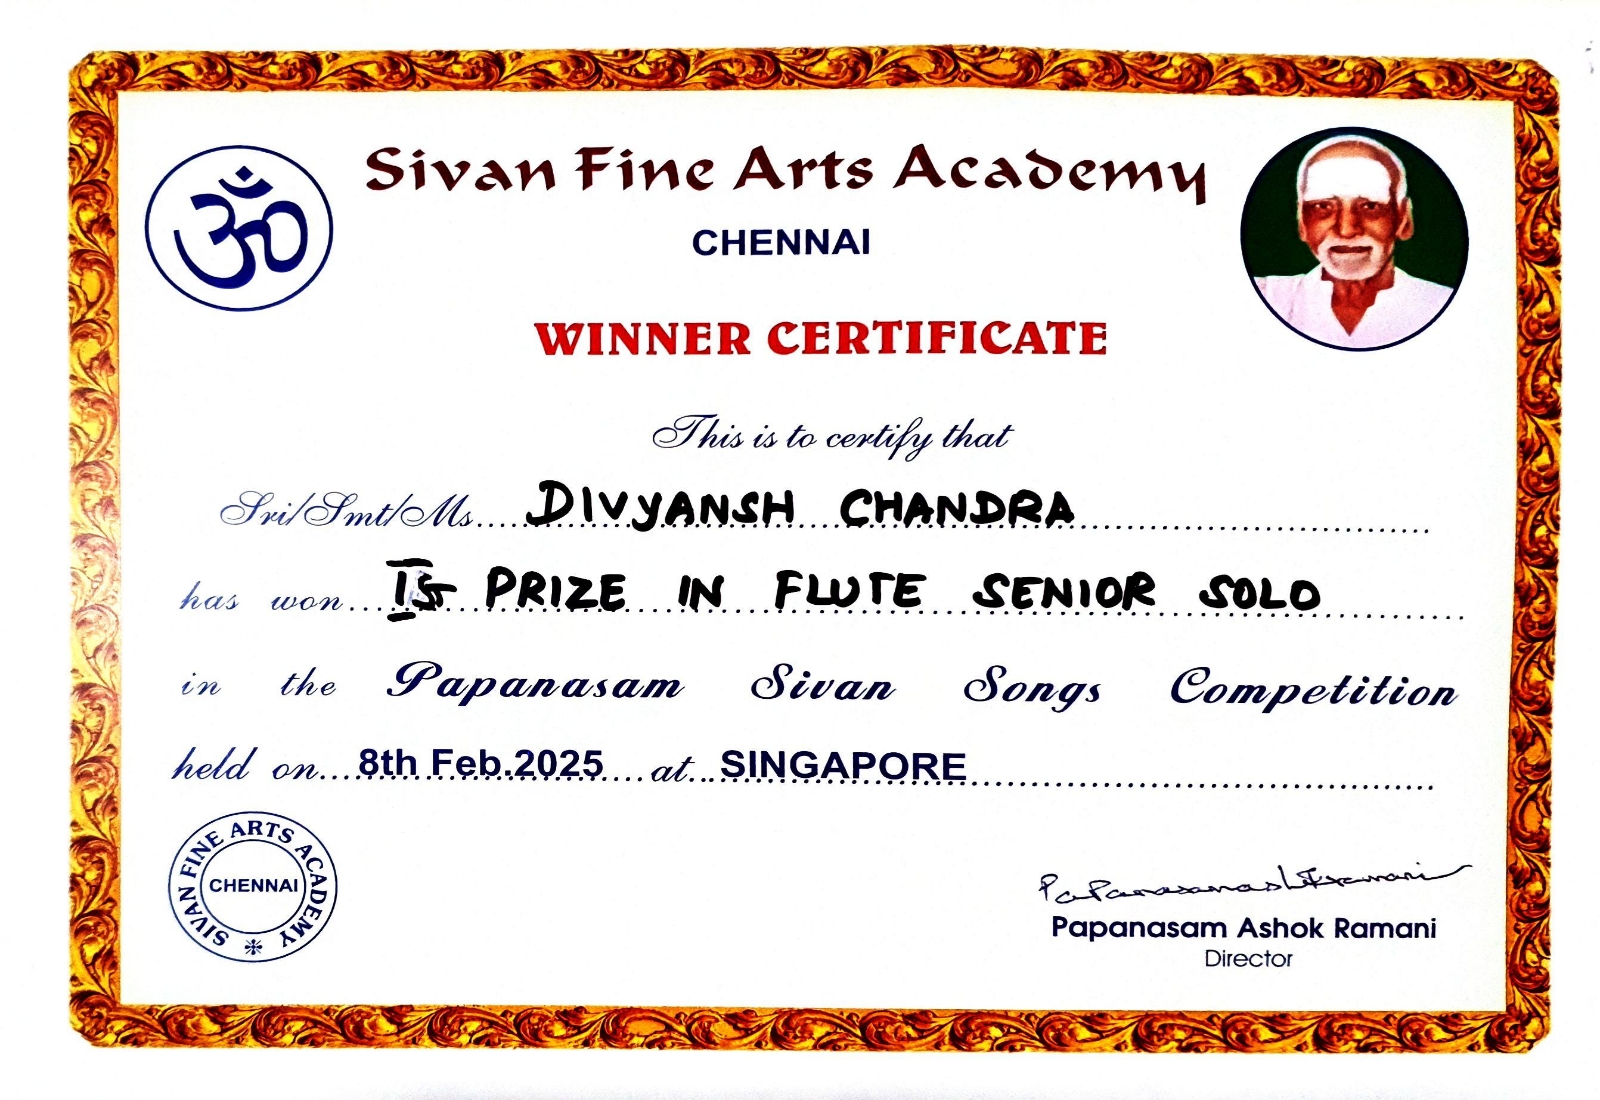 ॐ
Sivan Fine Arts Academy
CHENNAI
WINNER CERTIFICATE
This is to certify that
Sri/Smt/Ms....DIVYANSH CHANDRA
has won....Ist PRIZE IN FLUTE SENIOR SOLO
in the Papanasam Sivan Songs Competition
held on...8th Feb.2025....at..SINGAPORE
SIVAN FINE ARTS ACADEMY
CHENNAI
Papanasam Ashok Ramani
Director